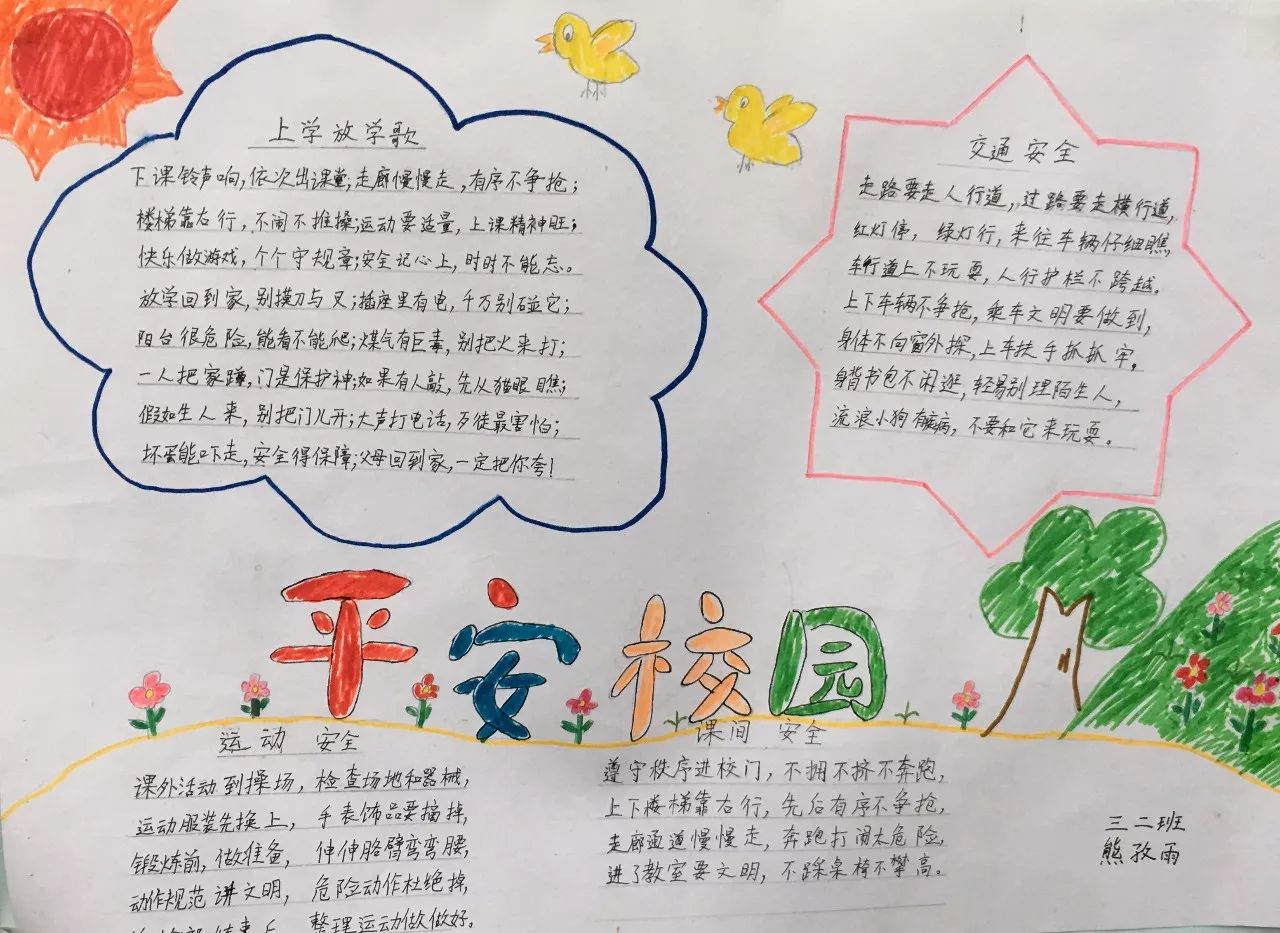 上学放学歌
下课铃声响,依次出课堂;走廊慢慢走,有序不争抢;
楼梯靠右行,不闹不推搡;运动要适量,上课精神旺;
快乐做游戏,个个守规章;安全记心上,时时不能忘。
放学回到家,别摸刀与叉;插座里有电,千万别碰它;
阳台很危险,能看不能爬;煤气有巨毒,别把火来打;
一人把家蹲,门是保护神;如果有人敲,先从猫眼瞧;
假如生人来,别把门儿开;大声打电话,歹徒最害怕;
坏蛋能吓走,安全得保障;父母回到家,一定把你夸!
交通安全
走路要走人行道,过路要走横行道,
红灯停,绿灯行,来往车辆仔细瞧,
车行道上不玩耍,人行护栏不跨越。
上下车辆不争抢,乘车文明要做到,
身体不向窗外探,上车扶手抓抓牢。
身背书包不闲逛,轻易别理陌生人,
流浪小狗有病,不要和它来玩耍。
平安校园
运动安全
课外活动到操场,检查场地和器械,
运动服装先换上,手表饰品要摘掉,
锻炼前,做准备,伸伸胳臂弯弯腰,
动作规范讲文明,危险动作杜绝掉,
整理运动做做好。
课间安全
遵守秩序进校门,不拥不挤不奔跑,
上下楼梯靠右行,先后有序不争抢,
走廊通道慢慢走,奔跑打闹太危险,
进了教室要文明,不踩桌椅不攀高。
三二班
熊孜雨